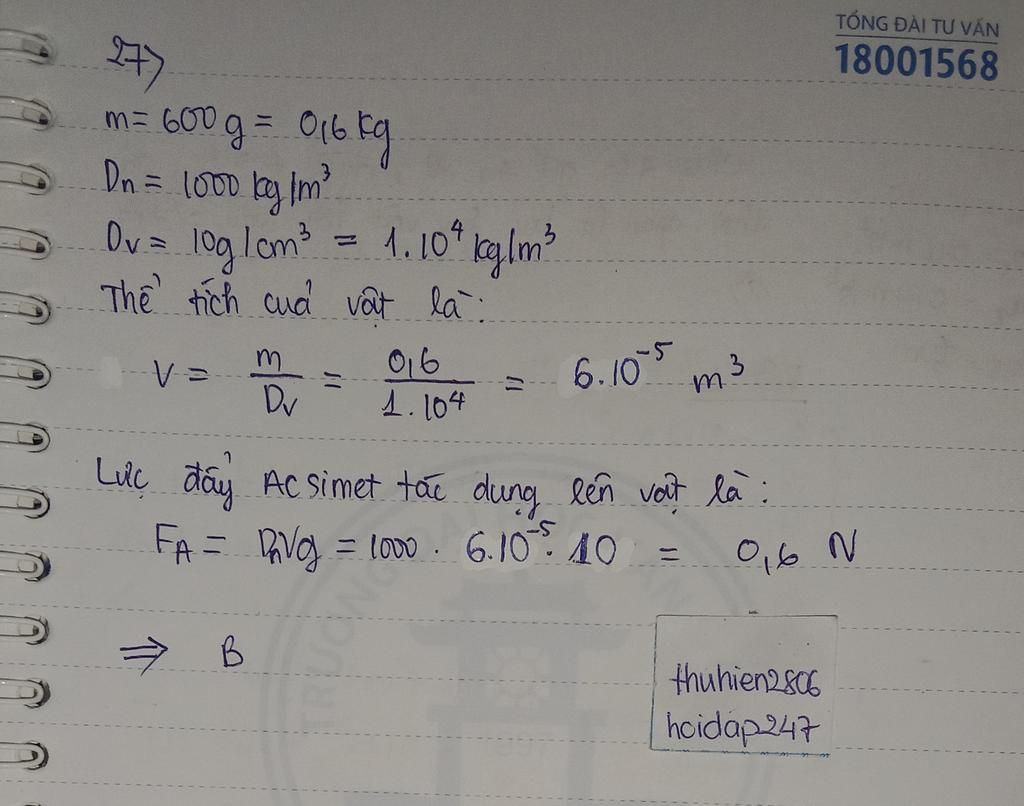 TỔNG ĐÀI TƯ VẤN
18001568
27)
m = 600g = 0,6 kg
Dn = 1000 kg/m³
Dv = 10g/cm³ = 1.10⁴ kg/m³
Thể tích của vật là:
V = m/Dv = 0,6/1.10⁴ = 6.10⁻⁵ m³
Lực đẩy Acsimet tác dụng lên vật là:
FA = DnVg = 1000 . 6.10⁻⁵. 10 = 0,6 N
⇒ B
thuhien2806
hoidap247
TRƯỜNG ĐẠI